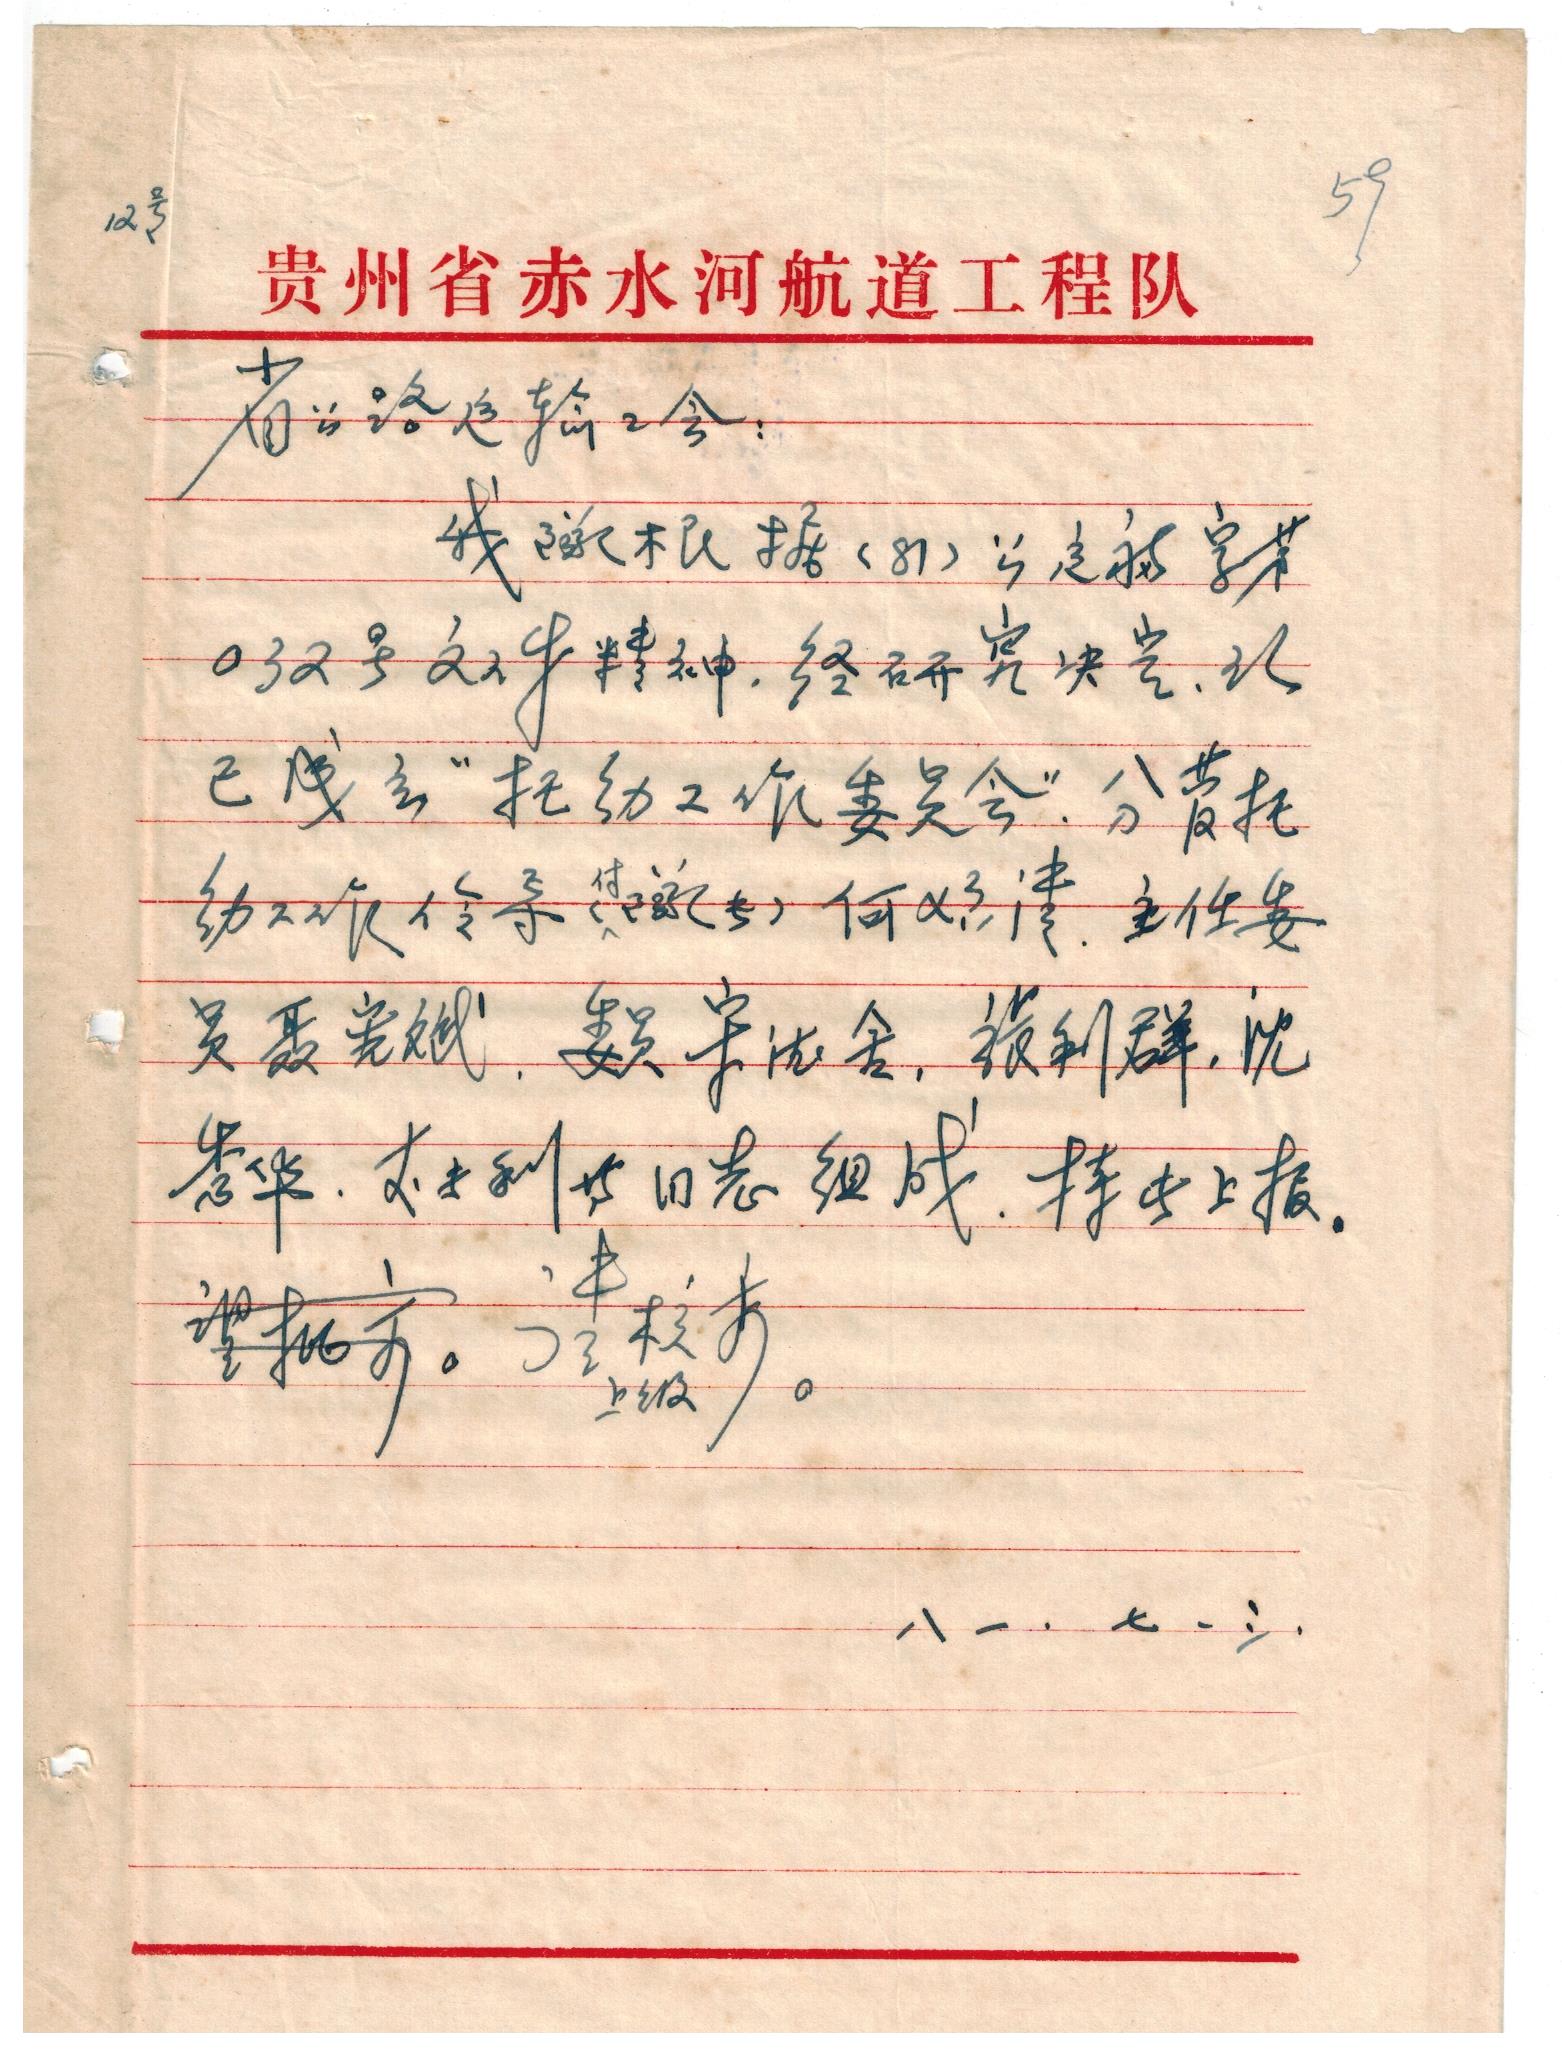 12号
59
贵州省赤水河航道工程队
省公路运输工会：
我队根据（81）公运福字第
032号文件精神．经研究决定、现
已成立“托幼工作委员会”．分管托
幼工作领导（付队长）何 清．主任委
员聂宪斌．委员宋 ．张利群．沈
秀华．艾 利等同志组成．特此上报。
望批示。请上级核示。
八一．七．一三．